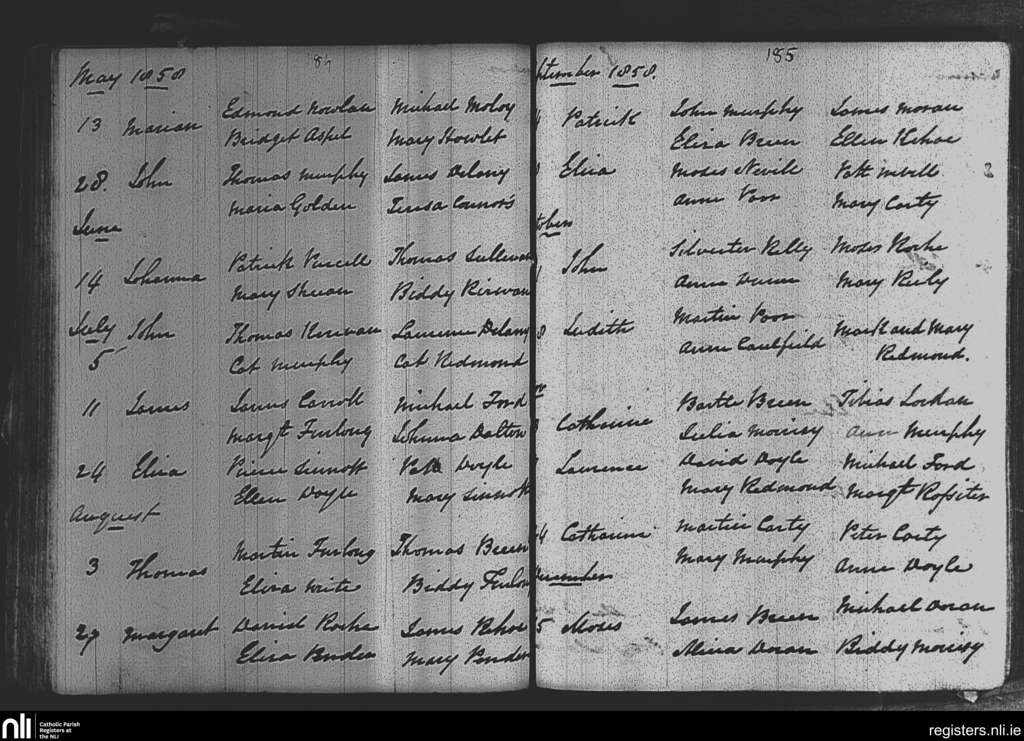 May 1858
13 Marian Edmond Nowlan Michael Moloy
Bridget Aspel Mary Howlet
28. John Thomas Murphy James Delany
Maria Golden Teresa Connors
June
14 Johanna Patrick Purcell Thomas Sullevan
Mary Sheean Biddy Kirwan
July John Thomas Kerwan Laurence Delany
5 Cat Murphy Cat Redmond
11 James James Carroll Michael Ford
Margt Furlong Johnna Dalton
24 Eliza Pierce Sinnott Patt Doyle
Ellen Doyle Mary Sinnott
August
3 Thomas Martin Furlong Thomas Breen
Eliza White Biddy Furlon
27 Margaret David Roche James Kehoe
Eliza Pender Mary Pender
185
ptember 1858.
Patrick John Murphy James Moran
Eliza Breen Ellen Kehoe
Eliza Moses Nevill Patt Nevill
Anne Poor Mary Carty
tober
John Silvester Kelly Moses Roche
Anne Dunn Mary Kiely
8 Judith Martin Poor Mark and Mary
Anne Caulfield Redmond.
Catharine Bartle Breen Tobias Lordan
Julia Morissy Ann Murphy
Laurence David Doyle Michael Ford
Mary Redmond Margt Rossiter
4 Catharine Martin Carty Peter Carty
Mary Murphy Anne Doyle
December
5 Moses James Breen Michael Doran
Alicia Doran Biddy Morissy
nli
Catholic Parish
Registers at
the NLI
registers.nli.ie